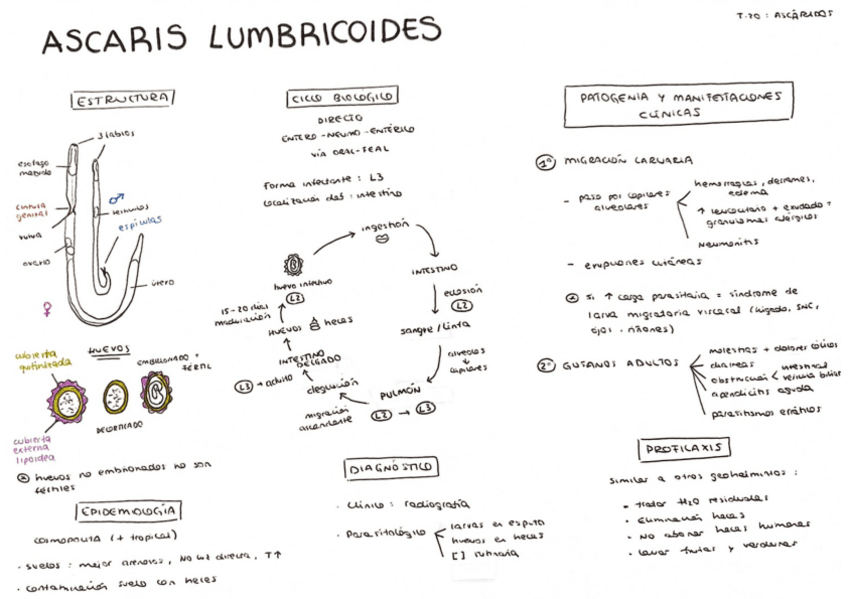 T.20: ASCÁRIDOS
ASCARIS LUMBRICOIDES
ESTRUCTURA
3 labios
esófago
cintura
genital
vulva
ovario
testículos
espículas
útero
♂
♀
HUEVOS
cubierta
EMBRIONADO =
FÉRTIL
DECORTICADO
cubierta
externa
lipoidea
* huevos no embrionados no son
fértiles
EPIDEMIOLOGÍA
cosmopolita (+ tropical)
· suelos: mejor arenosos, NO luz directa, T↑
· contaminación suelo con heces
CICLO BIOLÓGICO
DIRECTO
ENTERO-NEUMO-ENTÉRICO
VÍA ORAL-FECAL
Forma infectante: L3
Localización: intestino
ingestión
INTESTINO
eclosión
L2
sangre/linfa
alveolos
capilares
PULMÓN
L2 → L3
migración
ascendente
deglución
INTESTINO
DELGADO
L3 → adulto
HUEVOS heces
15-20 días
maduración
huevo infectivo
L2
DIAGNÓSTICO
· Clínico: radiografía
· Parasitológico
larvas en esputo
huevos en heces
[ ] rutinaria
PATOGENIA Y MANIFESTACIONES
CLÍNICAS
1º MIGRACIÓN LARVARIA
- paso por capilares
alveolares
hemorragias, derrames,
edema
↑ leucocitario + exudado =
granulomas alérgicos
Neumonitis
- erupciones cutáneas
* Si ↑ carga parasitaria = síndrome de
larva migratoria visceral (hígado, SNC,
ojos, riñones)
2º GUSANOS ADULTOS
molestias + dolores cólicos
diarreas
obstrucción < intestinal
vesícula biliar
apendicitis aguda
parasitismos erráticos
PROFILAXIS
similar a otros geohelmintos:
- tratar H2O residuales
· Eliminación heces
· No abonar heces humanas
· lavar frutas y verduras